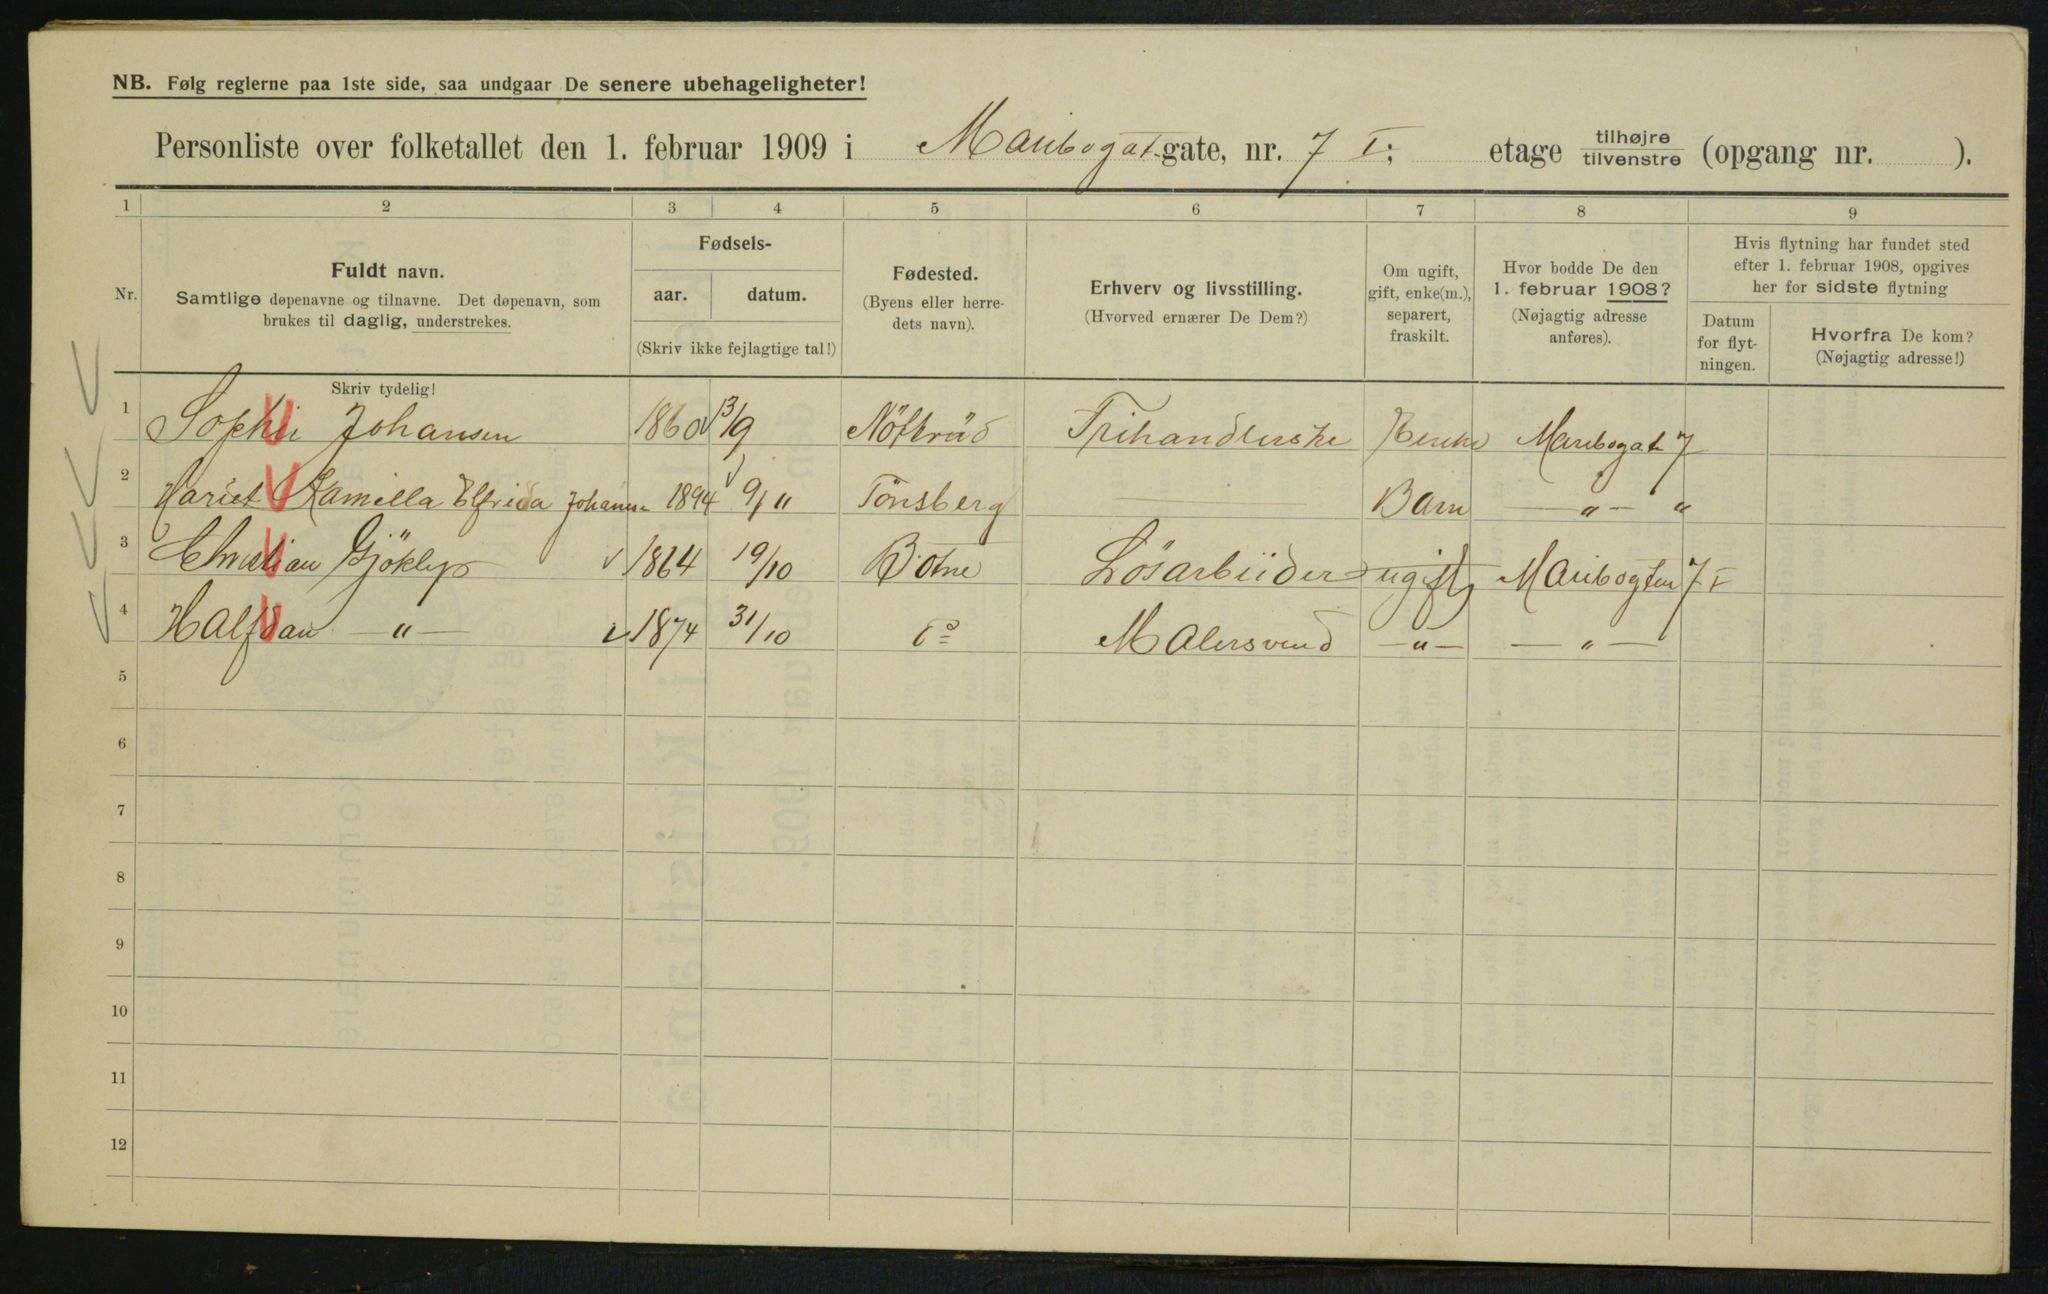 NB. Følg reglerne paa 1ste side, saa undgaar De senere ubehageligheter!
Personliste over folketallet den 1. februar 1909 i Maribogat-gate, nr. 7 I; etage tilhøjre tilvenstre (opgang nr. ).
1 2 3 4 5 6 7 8 9
Nr.
Fuldt navn.
Samtlige døpenavne og tilnavne. Det døpenavn, som
brukes til daglig, understrekes.
Skriv tydelig!
Fødsels-
aar. datum.
(Skriv ikke fejlagtige tal!)
Fødested.
(Byens eller herre-
dets navn).
Erhverv og livsstilling.
(Hvorved ernærer De Dem?)
Om ugift,
gift, enke(m.),
separert,
fraskilt.
Hvor bodde De den
1. februar 1908?
(Nøjagtig adresse
anføres).
Hvis flytning har fundet sted
efter 1. februar 1908, opgives
her for sidste flytning
Datum
for flyt-
ningen.
Hvorfra De kom?
(Nøjagtig adresse!)
1 Johansen 1860 13/9 Maribogate 7
2 Kamilla Elfrida Johansen 1894 9/" Tönsberg Barn — " — "
3 Christian 1864 19/10 Botne Lösarbeider ugift Maribogten 7 I
4 Halfdan — " — 1874 31/10 do Malersvend — " — — " —
5
6
7
8
9
10
11
12